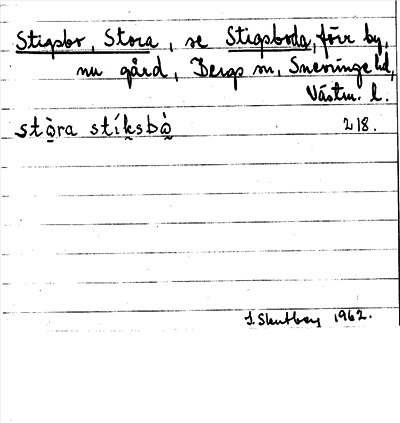 Stigsbo, Stora, se Stigsboda, förr by,
nu gård, Bergs sn, Snevringe hd,
Västm. l.
stò̱ra stíḵsbò̰ 218.
1962.